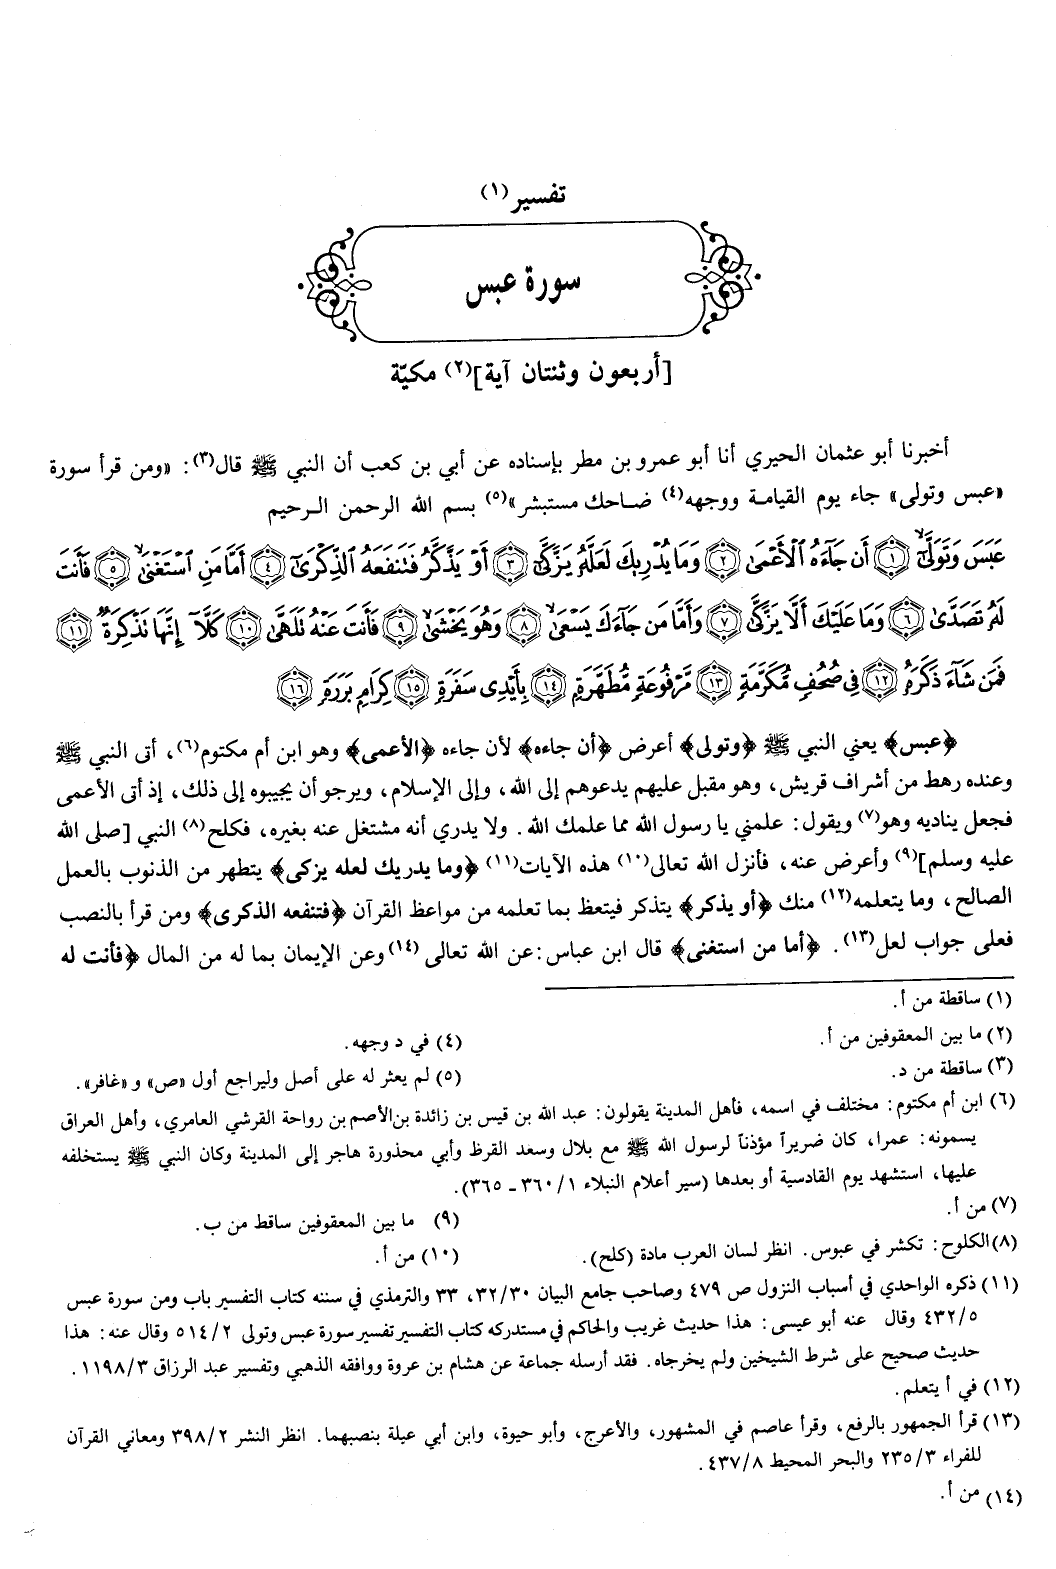 تفسير (١)
سورة عبس
[أربعون وثنتان آية](٢) مكيّة
أخبرنا أبو عثمان الحيري أنا أبو عمرو بن مطر بإسناده عن أبي بن كعب أن النبي ﷺ قال(٣): «ومن قرأ سورة
«عبس وتولى» جاء يوم القيامة ووجهه(٤) ضاحك مستبشر»(٥) بسم الله الرحمن الرحيم
عَبَسَ وَتَوَلَّىٰٓ ١ أَن جَآءَهُ ٱلْأَعْمَىٰ ٢ وَمَا يُدْرِيكَ لَعَلَّهُۥ يَزَّكَّىٰٓ ٣ أَوْ يَذَّكَّرُ فَتَنفَعَهُ ٱلذِّكْرَىٰٓ ٤ أَمَّا مَنِ ٱسْتَغْنَىٰ ٥ فَأَنتَ
لَهُۥ تَصَدَّىٰ ٦ وَمَا عَلَيْكَ أَلَّا يَزَّكَّىٰ ٧ وَأَمَّا مَن جَآءَكَ يَسْعَىٰ ٨ وَهُوَ يَخْشَىٰ ٩ فَأَنتَ عَنْهُ تَلَهَّىٰ ١٠ كَلَّآ إِنَّهَا تَذْكِرَةٌ ١١
فَمَن شَآءَ ذَكَرَهُۥ ١٢ فِى صُحُفٍ مُّكَرَّمَةٍ ١٣ مَّرْفُوعَةٍ مُّطَهَّرَةٍۭ ١٤ بِأَيْدِى سَفَرَةٍ ١٥ كِرَامٍۭ بَرَرَةٍ ١٦
﴿عبس﴾ يعني النبي ﷺ ﴿وتولى﴾ أعرض ﴿أن جاءه﴾ لأن جاءه ﴿الأعمى﴾ وهو ابن أم مكتوم(٦)، أتى النبي ﷺ
وعنده رهط من أشراف قريش، وهو مقبل عليهم يدعوهم إلى الله، وإلى الإسلام، ويرجو أن يجيبوه إلى ذلك، إذ أتى الأعمى
فجعل يناديه وهو(٧) ويقول: علمني يا رسول الله مما علمك الله. ولا يدري أنه مشتغل عنه بغيره، فكلح(٨) النبي [صلى الله
عليه وسلم](٩) وأعرض عنه، فأنزل الله تعالى(١٠) هذه الآيات(١١) ﴿وما يدريك لعله يزكى﴾ يتطهر من الذنوب بالعمل
الصالح، وما يتعلمه(١٢) منك ﴿أو يذكر﴾ يتذكر فيتعظ بما تعلمه من مواعظ القرآن ﴿فتنفعه الذكرى﴾ ومن قرأ بالنصب
فعلى جواب لعل(١٣). ﴿أما من استغنى﴾ قال ابن عباس: عن الله تعالى (١٤) وعن الإيمان بما له من المال ﴿فأنت له
(١) ساقطة من أ.
(٢) ما بين المعقوفين من أ.
(٣) ساقطة من د.
(٤) في د وجهه.
(٥) لم يعثر له على أصل وليراجع أول «ص» و «غافر».
(٦) ابن أم مكتوم: مختلف في اسمه، فأهل المدينة يقولون: عبد الله بن قيس بن زائدة بن الأصم بن رواحة القرشي العامري، وأهل العراق
يسمونه: عمرا، كان ضريراً مؤذناً لرسول الله ﷺ مع بلال وسعد القرظ وأبي محذورة هاجر إلى المدينة وكان النبي ﷺ يستخلفه
عليها، استشهد يوم القادسية أو بعدها (سير أعلام النبلاء ٣٦٠/١ ـ ٣٦٥).
(٧) من أ.
(٨) الكلوح: تكشر في عبوس. انظر لسان العرب مادة (كلح).
(٩) ما بين المعقوفين ساقط من ب.
(١٠) من أ.
(١١) ذكره الواحدي في أسباب النزول ص ٤٧٩ وصاحب جامع البيان ٣٢/٣٠، ٣٣ والترمذي في سننه كتاب التفسير باب ومن سورة عبس
٤٣٢/٥ وقال عنه أبو عيسى: هذا حديث غريب والحاكم في مستدركه كتاب التفسير تفسير سورة عبس وتولى ٥١٤/٢ وقال عنه: هذا
حديث صحيح على شرط الشيخين ولم يخرجاه. فقد أرسله جماعة عن هشام بن عروة ووافقه الذهبي وتفسير عبد الرزاق ١١٩٨/٣.
(١٢) في أ يتعلم.
(١٣) قرأ الجمهور بالرفع، وقرأ عاصم في المشهور، والأعرج، وأبو حيوة، وابن أبي عبلة بنصبهما. انظر النشر ٣٩٨/٢ ومعاني القرآن
للفراء ٢٣٥/٣ والبحر المحيط ٤٣٧/٨.
(١٤) من أ.